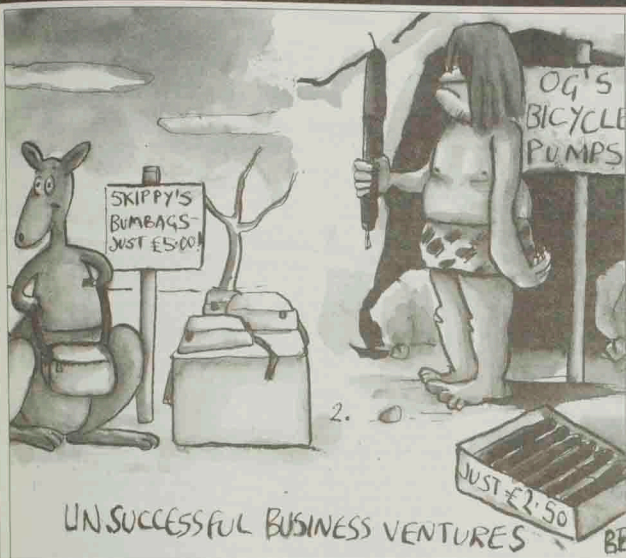 SKIPPY'S
BUMBAGS-
JUST £5.00!
OG'S
BICYCLE
PUMPS
2.
JUST £2.50
UNSUCCESSFUL BUSINESS VENTURES
BE